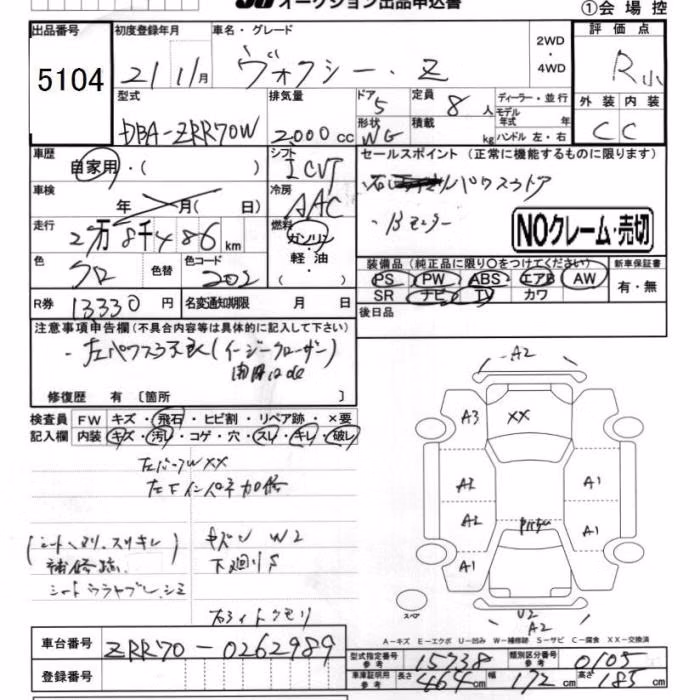 オークション出品申込書
①会場控
出品番号 初度登録年月 車名・グレード 2WD・4WD 評価点
5104 21 11月 ヴォクシー・Z R小
型式 排気量 ドア 5 定員 8人 ディーラー・並行 外装 内装
DBA-ZRR70W 2000cc 形状 WG 積載 kg モデル年式 年 ハンドル 左・右 C C
車歴 自家用・( ) シフト ICVT セールスポイント (正常に機能するものに限ります)
車検 年 月( 日) 冷房 AAC パワスラドア
走行 2万8千486km 燃料 ガソリン・軽油・( ) ・Bモニター NOクレーム・売切
色 クロ 色替 色コード 202 装備品(純正品に限り〇をつけてください) 新車保証書
PS PW ABS エアB AW 有・無
SR ナビ TV カワ
R券 13330円 名変通知期限 月 日 後日品
注意事項申告欄(不具合内容等は具体的に記入して下さい)
・左パワスラ不良(イージークローザー)
修復歴 有 〔箇所 〕
検査員記入欄 FW キズ・飛石・ヒビ割・リペア跡・×要
内装 キズ・汚レ・コゲ・穴・スレ・キレ・破レ
補修跡
下廻りS
A2
A3 XX
A2 A1
A2 A1
A1
U2
A2
スペア
A-キズ E-エクボ U-凹み W-補修跡 S-サビ C-腐食 XX-交換済
車台番号 ZRR70-0262989
登録番号
型式指定番号 参考 15738 類別区分番号 参考 0105
車庫証明用 参考 長さ 464cm 幅 172cm 高さ 185cm